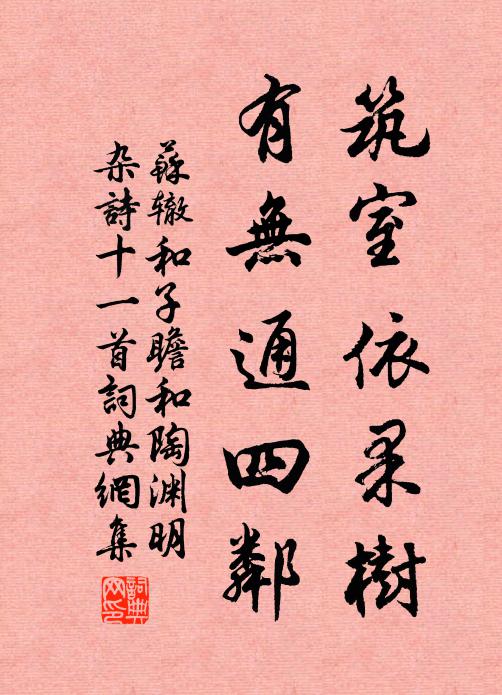 筑室依果樹
有無通四鄰
蘇辙和子瞻和陶渊明
杂詩十一首詞典網集
詞典
网印